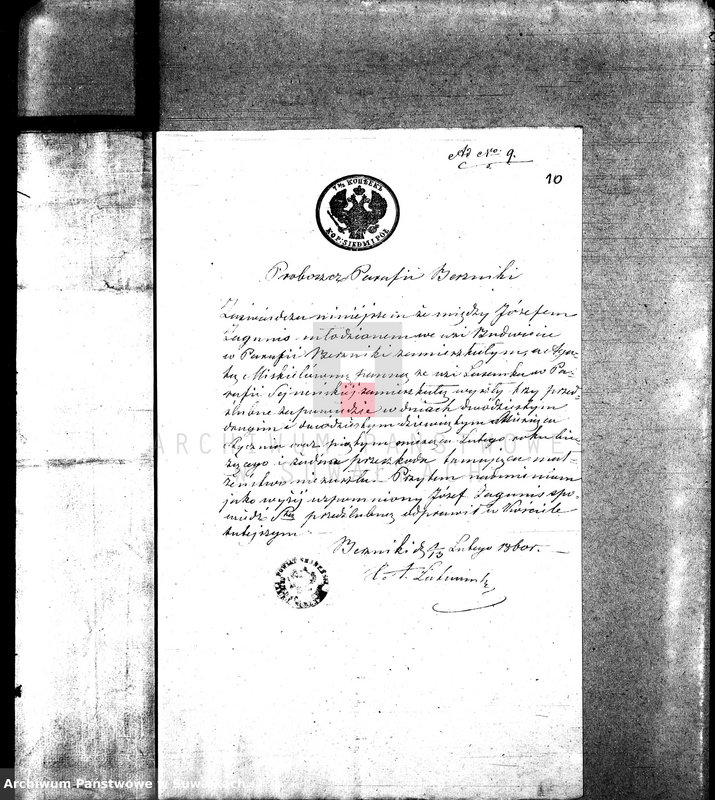 Ad Nro 9.
10
7½ КОПѢЕКЪ
KOP. SIEDM I PÓŁ
Proboszcz Parafii Berzniki
Zaświadcza niniejszem że między Józefem
Jagunis młodzianem we wsi Budwiecie
w Parafii Berzniki zamieszkałym, a Aga-
tą Miskielówną panną ze wsi w Pa-
rafii Sejneńskiej zamieszkałą wyszły trzy przed-
ślubne zapowiedzie w dniach dwódziestym
drugim i dwódziestym dziewiątym Miesiąca
Stycznia oraz piątym miesiąca Lutego roku bie-
żącego i żadna przeszkoda tamująca mał-
żeństwo nie zaszła. Przytem nadmieniam
jako wyżéj wspomniony Józef Jagunis spo-
wiedź Stą przedślubną odprawił w Kościele
tutejszym
Berzniki d. 1/13 Lutego 1860r.
X. A.
ARCHIWUM PAŃSTWOWE
W SUWAŁKACH
Archiwum Państwowe w Suwałkach